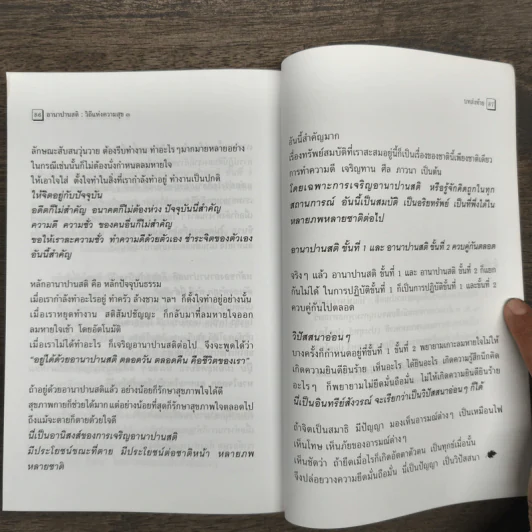 ๑๖ อานาปานสติ : วิถีแห่งความสุข ๑
ลักษณะสับสนวุ่นวาย ต้องรีบทำงาน ทำอะไรๆมากมายหลายอย่าง
ในกรณีเช่นนั้นก็ไม่ต้องนั่งกำหนดลมหายใจ
ให้เอาใจใส่ ตั้งใจทำในสิ่งที่เรากำลังทำอยู่ ทำงานเป็นปกติ
ให้จิตอยู่กับปัจจุบัน
อดีตก็ไม่สำคัญ อนาคตก็ไม่ต้องห่วง ปัจจุบันนี้สำคัญ
ความดี ความชั่ว ของคนอื่นก็ไม่สำคัญ
ขอให้เราละความชั่ว ทำความดีด้วยตัวเอง ชำระจิตของตัวเอง
อันนี้สำคัญ
หลักอานาปานสติ คือ หลักปัจจุบันธรรม
เมื่อเรากำลังทำอะไรอยู่ ทำครัว ล้างชาม ฯลฯ ก็ตั้งใจทำอยู่อย่างนั้น
เมื่อเราหยุดทำงาน สติสัมปชัญญะ ก็กลับมาที่ลมหายใจออก
ลมหายใจเข้า โดยอัตโนมัติ
เมื่อเราไม่ได้ทำอะไร ก็เจริญอานาปานสติต่อไป จึงจะพูดได้ว่า
"อยู่ได้ด้วยอานาปานสติ ตลอดวัน ตลอดคืน คือชีวิตของเรา"
ถ้าอยู่ด้วยอานาปานสติแล้ว อย่างน้อยก็รักษาสุขภาพใจได้ดี
สุขภาพกายก็ช่วยได้มาก แต่อย่างน้อยที่สุดก็รักษาสุขภาพใจตลอดไป
ถึงแม้จะตายก็ตายด้วยใจดี
นี่เป็นอานิสงส์ของการเจริญอานาปานสติ
มีประโยชน์ขณะที่ตาย มีประโยชน์ต่อชาติหน้า หลายภพ
หลายชาติ
บทส่งท้าย ๑๗
อันนี้สำคัญมาก
เรื่องทรัพย์สมบัติที่เราสะสมอยู่นี้ก็เป็นเรื่องของชาตินี้เพียงชาติเดียว
การทำความดี เจริญทาน ศีล ภาวนา เป็นต้น
โดยเฉพาะการเจริญอานาปานสติ หรือรู้จักคิดถูกในทุก
สถานการณ์ อันนี้เป็นสมบัติ เป็นอริยทรัพย์ เป็นที่พึ่งได้ใน
หลายภพหลายชาติต่อไป
อานาปานสติ ขั้นที่ 1 และ อานาปานสติ ขั้นที่ 2 ควบคู่กันตลอด
จริงๆ แล้ว อานาปานสติ ขั้นที่ 1 และ อานาปานสติ ขั้นที่ 2 ก็แยก
กันไม่ได้ ในการปฏิบัติขั้นที่ 1 ก็เป็นการปฏิบัติขั้นที่ 1 และขั้นที่ 2
ควบคู่กันไปตลอด
วิปัสสนาอ่อนๆ
บางครั้งก็กำหนดอยู่ที่ขั้นที่ 1 ขั้นที่ 2 พยายามเกาะลมหายใจไม่ให้
เกิดความยินดียินร้าย เห็นอะไร ได้ยินอะไร เกิดความรู้สึกนึกคิด
อะไรๆ ก็พยายามไม่ยึดมั่นถือมั่น ไม่ให้เกิดความยินดียินร้าย
นี่เป็นอินทรีย์สังวรณ์ จะเรียกว่าเป็นวิปัสสนาอ่อนๆ ก็ได้
ถ้าจิตเป็นสมาธิ มีปัญญา มองเห็นอารมณ์ต่างๆ เป็นเหมือนไฟ
เห็นโทษ เห็นภัยของอารมณ์ต่างๆ
เห็นชัดว่า ถ้ายึดเมื่อไรก็เกิดอัตตาตัวตน เป็นทุกข์เมื่อนั้น
จึงปล่อยวางความยึดมั่นถือมั่น นี่เป็นปัญญา เป็นวิปัสสนา